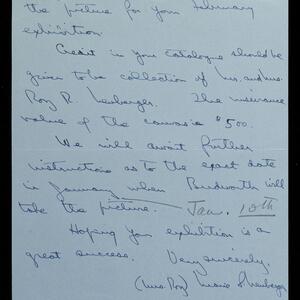 the picture for your February
exhibition.
Credit in your catalogue should be
given to the collection of Mr. and Mrs.
Roy R. Neuberger. The insurance
value of the canvas is $500.
We will await further
instructions as to the exact date
in January when Budworth will
take the picture. Jan. 10th
Hoping your exhibition is a
great success. Very sincerely,
(Mrs. Roy) Marie S. Neuberger